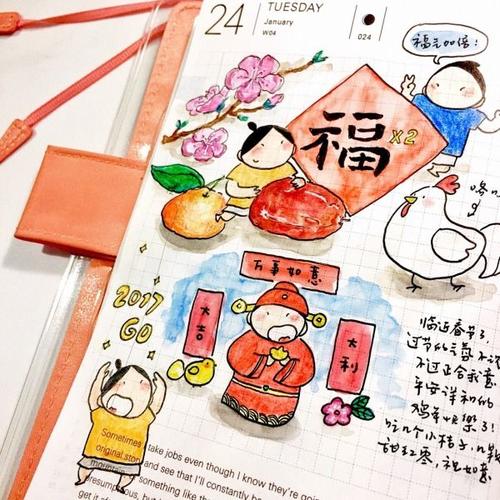 24
TUESDAY
January
W04
024
福气加倍!
福 x2
咯
万事如意
大吉
大利
2017
GO
临近春节了,
过节的气氛不浓
不过正合我意
平安详和的
鸡年快乐了!
吃几个小桔子,几颗
甜红枣,祝如意
Sometimes I take jobs even though I know they're go
original stop and see that I'll constantly b
mount something like th
presumptuous, bu
get it